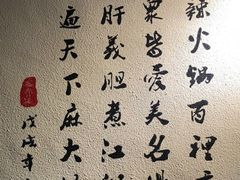 辣火锅百裡
眾皆爱美名
肝義胆煮江
遍天下麻大
戊戌年